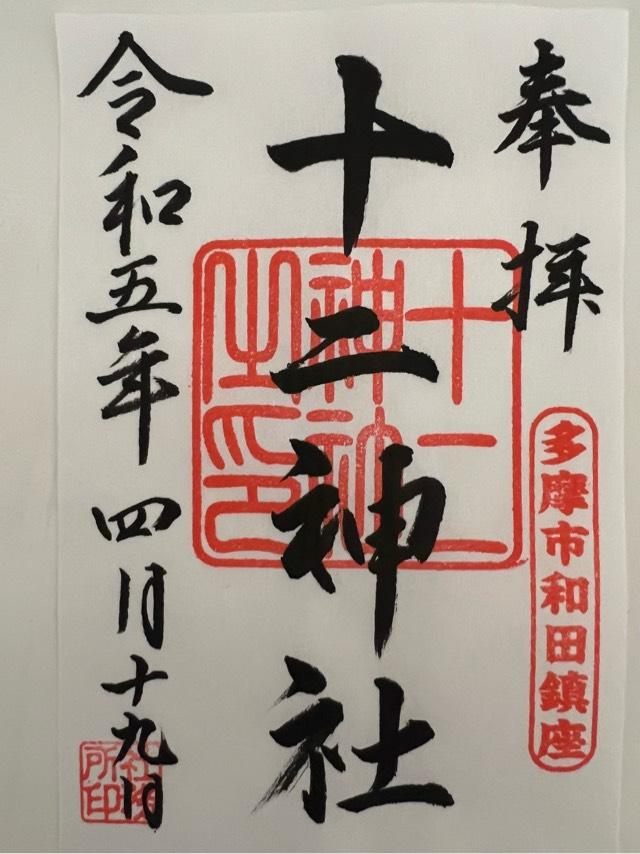 奉拝
多摩市和田鎮座
十二神社
十二
神社
之印
令和五年四月十九日
社務
所印